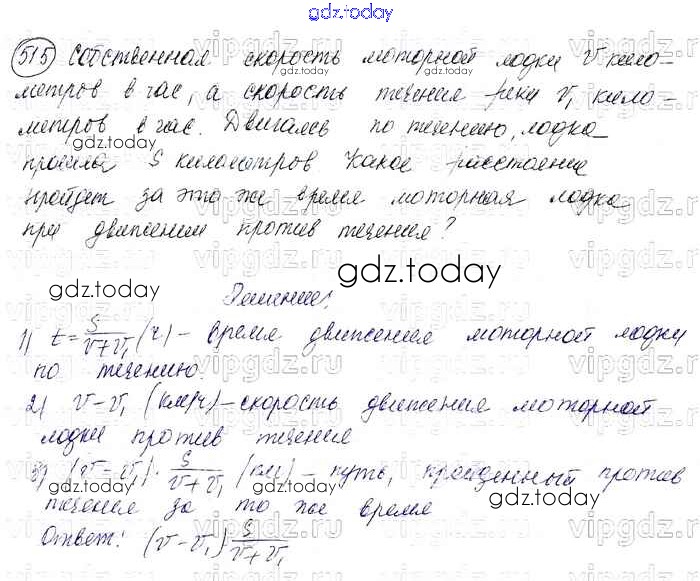 gdz.today
515 Собственная скорость моторной лодки v кило-
метров в час, а скорость течения реки v₁ кило-
метров в час. Двигаясь по течению, лодка
прошла S километров Какое расстояние
пройдет за это же время моторная лодка
при движении против течения?
Решение:
1) t = S/(v+v₁) (ч.) – время движения моторной лодки
по течению.
2) v – v₁ (км/ч) – скорость движения моторной
лодки против течения
3) (v – v₁) · S/(v+v₁) (км) – путь, пройденный против
течения за то же время
Ответ: (v – v₁) S/(v+v₁)
vipgdz.ru
gdz.today